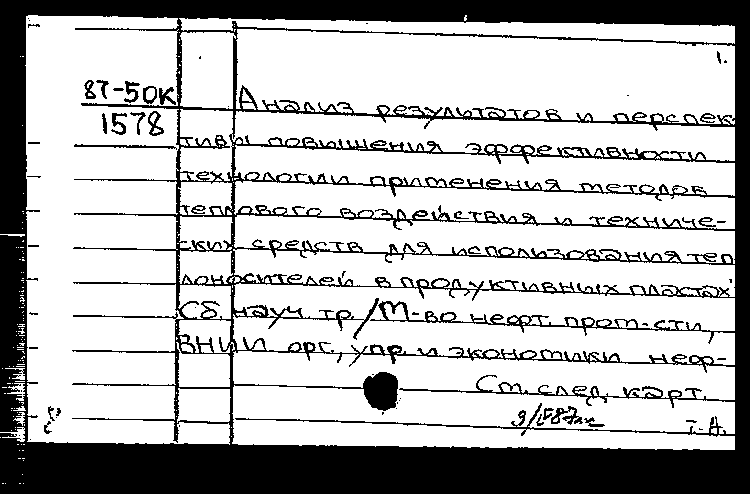 1.
87-50К
1578
Анализ результатов и перспек-
тивы повышения эффективности
технологии применения методов
теплового воздействия и техниче-
ских средств для использования теп
лоносителей в продуктивных пластах:
Сб. науч тр. /М-во нефт. пром-сти,
ВНИИ орг., упр. и экономики неф-
См. след. карт.
т-А.